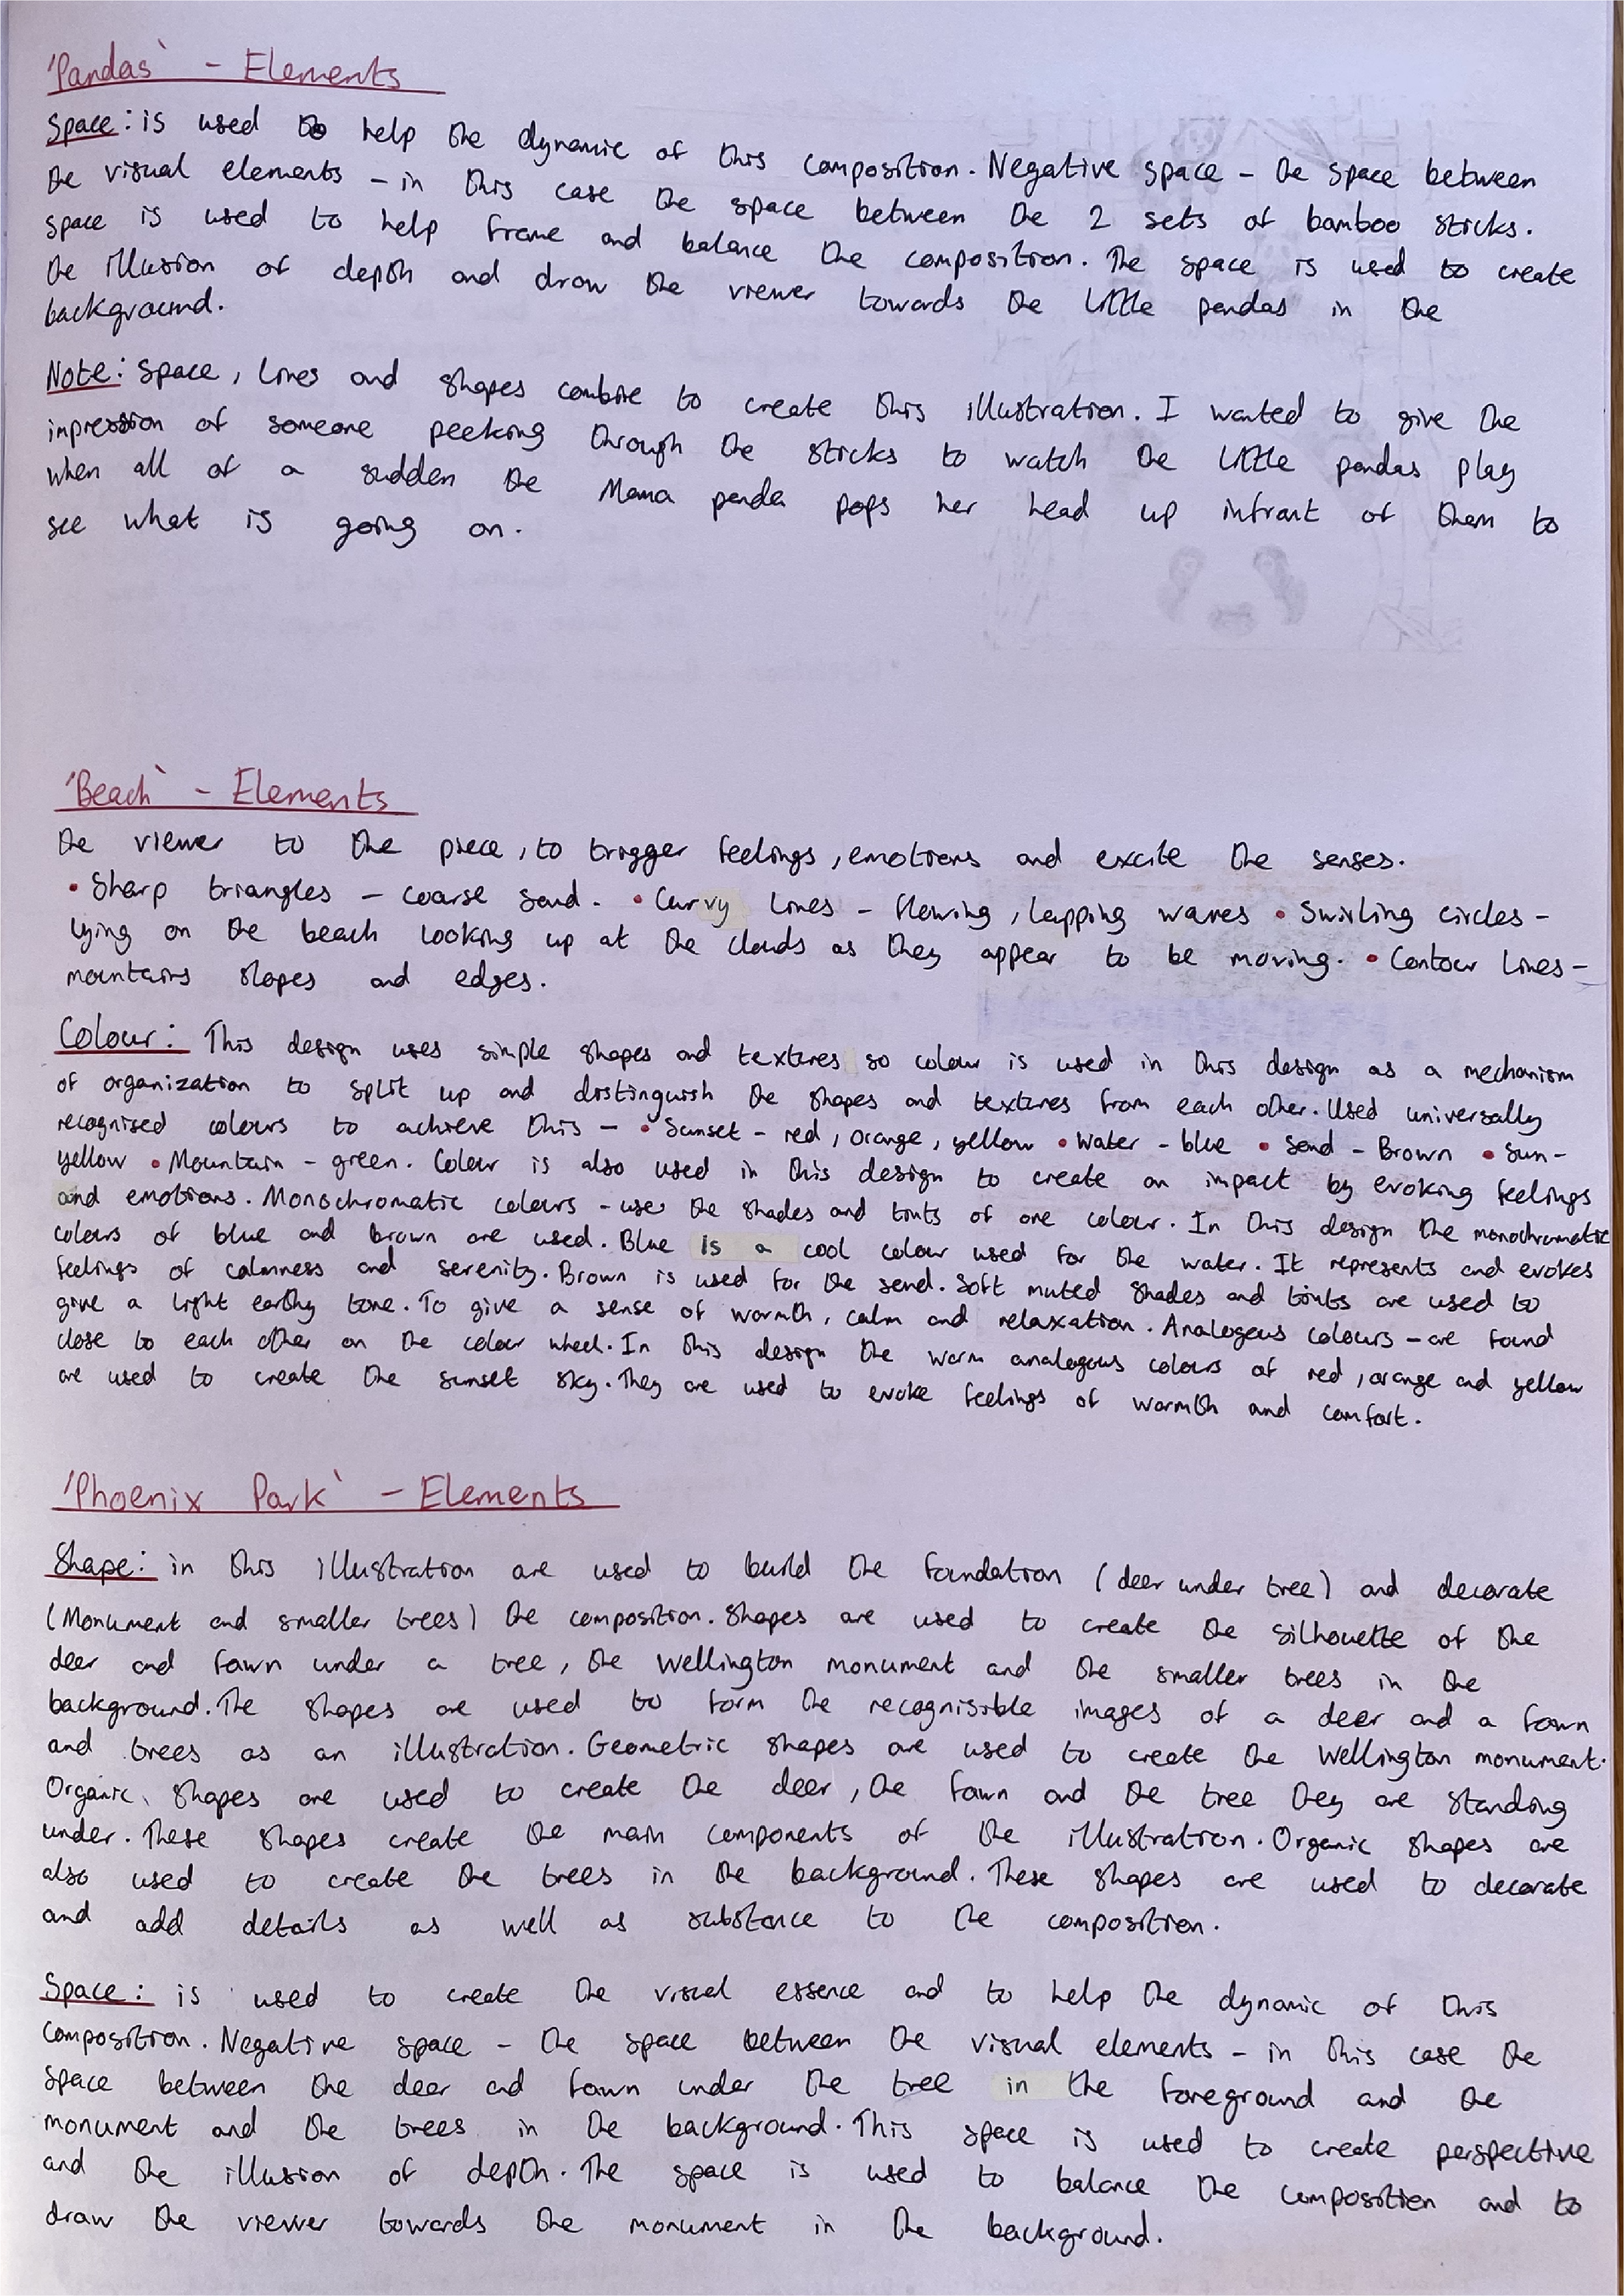 'Pandas' - Elements
Space: is used to help the dynamic of this composition. Negative space - the space between
the visual elements - in this case the space between the 2 sets of bamboo sticks.
space is used to help frame and balance the composition. The space is used to create
the illusion of depth and draw the viewer towards the little pandas in the
background.
Note: Space, lines and shapes combine to create this illustration. I wanted to give the
impression of someone peeking through the sticks to watch the little pandas play
when all of a sudden the Mama panda pops her head up infront of them to
see what is going on.
'Beach' - Elements
the viewer to the piece, to trigger feelings, emotions and excite the senses.
• Sharp triangles - coarse sand. • Curvy lines - flowing, lapping waves • Swirling circles -
lying on the beach looking up at the clouds as they appear to be moving. • Contour lines -
mountains slopes and edges.
Colour: This design uses simple shapes and textures so colour is used in this design as a mechanism
of organization to split up and distinguish the shapes and textures from each other. Used universally
recognised colours to achieve this - • Sunset - red, orange, yellow • Water - blue • Sand - Brown • Sun -
yellow • Mountain - green. Colour is also used in this design to create an impact by evoking feelings
and emotions. Monochromatic colours - uses the shades and tints of one colour. In this design the monochromatic
colours of blue and brown are used. Blue is a cool colour used for the water. It represents and evokes
feelings of calmness and serenity. Brown is used for the sand. Soft muted shades and tints are used to
give a light earthy tone. To give a sense of warmth, calm and relaxation. Analogous colours - are found
close to each other on the colour wheel. In this design the warm analogous colours of red, orange and yellow
are used to create the sunset sky. They are used to evoke feelings of warmth and comfort.
'Phoenix Park' - Elements
Shape: in this illustration are used to build the foundation (deer under tree) and decorate
(Monument and smaller trees) the composition. Shapes are used to create the silhouette of the
deer and fawn under a tree, the Wellington monument and the smaller trees in the
background. The shapes are used to form the recognisible images of a deer and a fawn
and trees as an illustration. Geometric shapes are used to create the Wellington monument.
Organic shapes are used to create the deer, the fawn and the tree they are standing
under. These shapes create the main components of the illustration. Organic shapes are
also used to create the trees in the background. These shapes are used to decorate
and add details as well as substance to the composition.
Space: is used to create the visual essence and to help the dynamic of this
composition. Negative space - the space between the visual elements - in this case the
space between the deer and fawn under the tree in the foreground and the
monument and the trees in the background. This space is used to create perspective
and the illusion of depth. The space is used to balance the composition and to
draw the viewer towards the monument in the background.